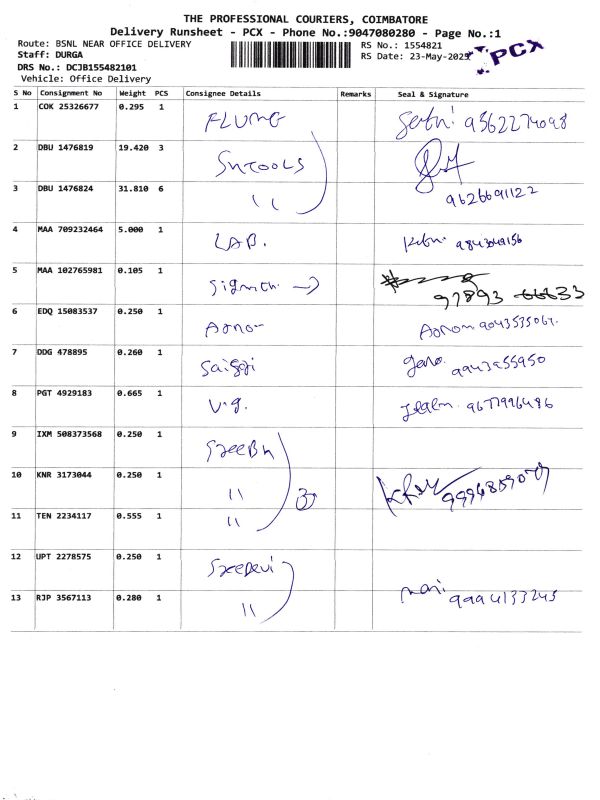 THE PROFESSIONAL COURIERS, COIMBATORE
Delivery Runsheet - PCX - Phone No.:9047080280 - Page No.:1
Route: BSNL NEAR OFFICE DELIVERY RS No.: 1554821
Staff: DURGA RS Date: 23-May-2025 PCX
DRS No.: DCJB155482101
Vehicle: Office Delivery
S No Consignment No Weight PCS Consignee Details Remarks Seal & Signature
1 COK 25326677 0.295 1 9362274098
2 DBU 1476819 19.420 3 SNTOOLS
3 DBU 1476824 31.810 6 11 9626691122
4 MAA 709232464 5.000 1 LAB. 9843049156
5 MAA 102765981 0.105 1 97893 66633
6 EDQ 15083537 0.250 1
7 DDG 478895 0.260 1 9943955950
8 PGT 4929183 0.665 1 V.g. 9677996486
9 IXM 508373568 0.250 1
10 KNR 3173044 0.250 1 11 3
11 TEN 2234117 0.555 1 11
12 UPT 2278575 0.250 1 Sreedevi
13 RJP 3567113 0.280 1 11 mari 9994133245